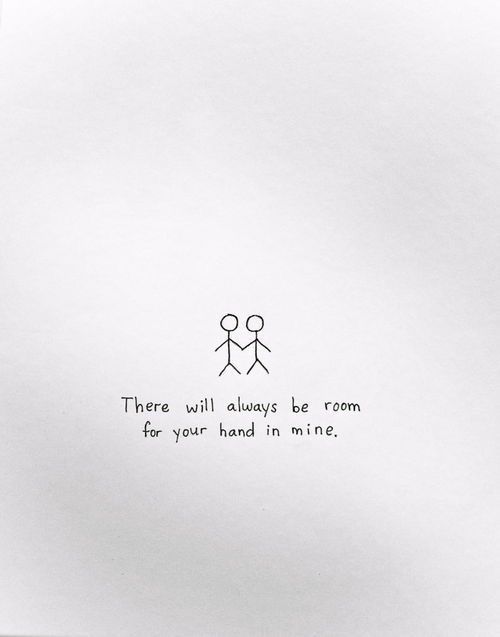 There will always be room
for your hand in mine.